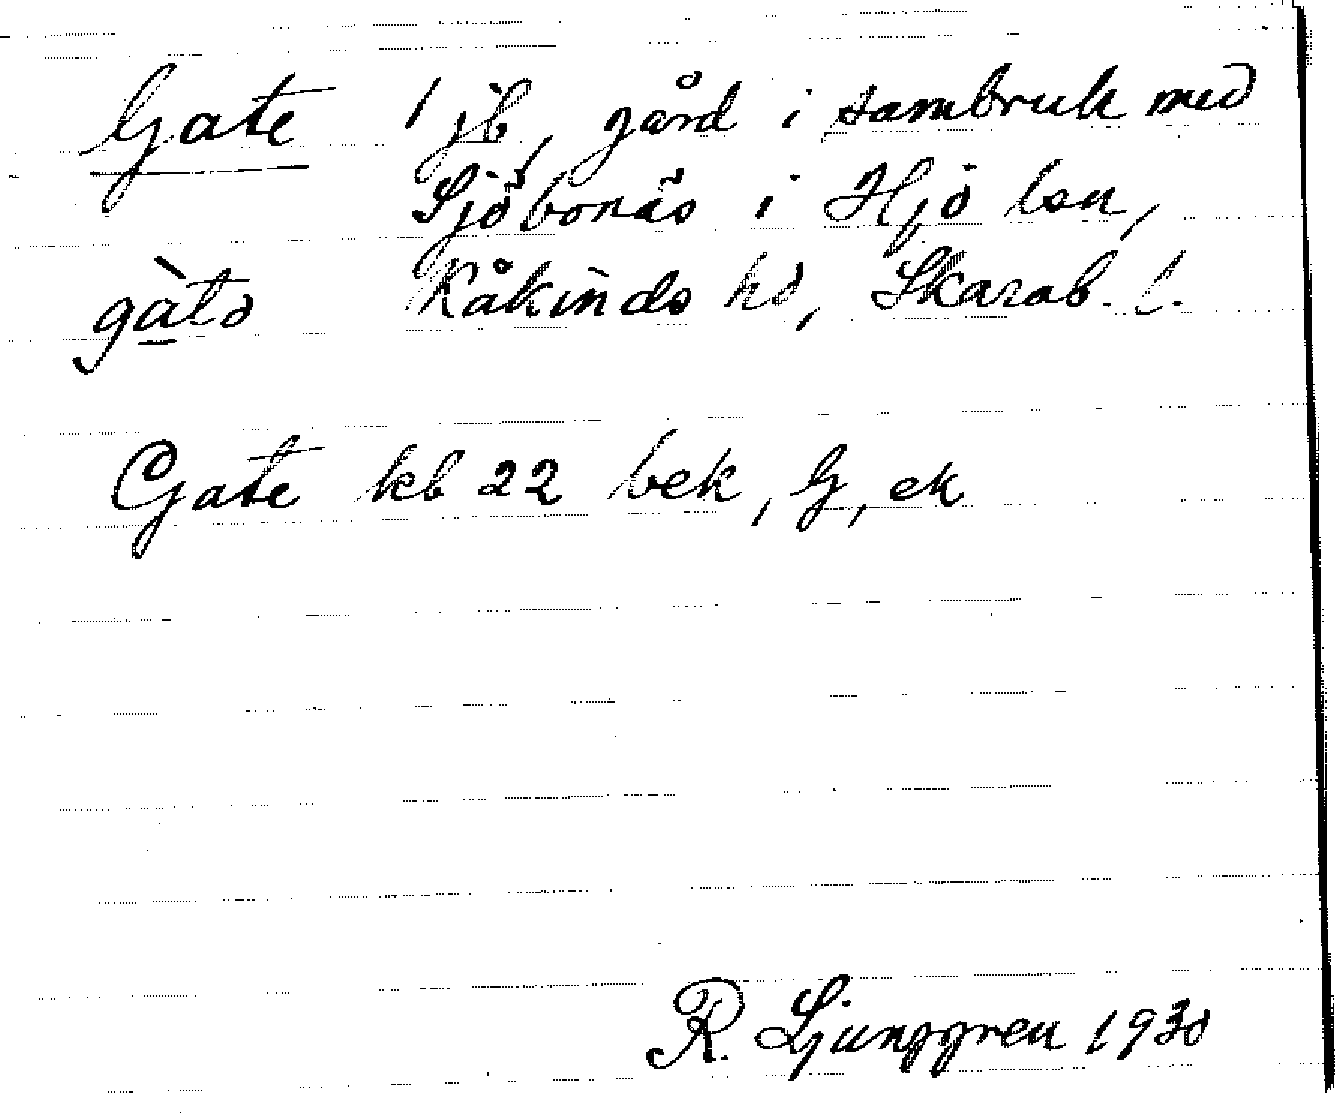 Gate 1 jb, gård i sambruk med
Sjöbonäs i Hjo lsn,
gàtə Kåkinds hd, Skarab. l.
Gate kb 22 bek, G, ek
R. Ljunggren 1930